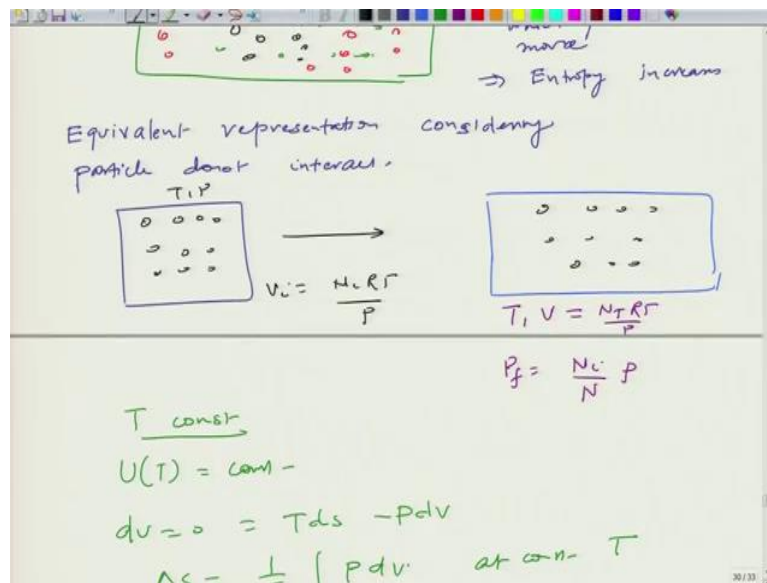 move
⇒ Entropy increases
Equivalent representation considering
particle donot interact.
T, P
Vi = NiRT / P
T, V = NTRT / P
Pf = Ni / N P
T const
U(T) = con-
dU = 0 = Tds - Pdv
Δs = 1 ∫ Pdv. at con- T
30/33